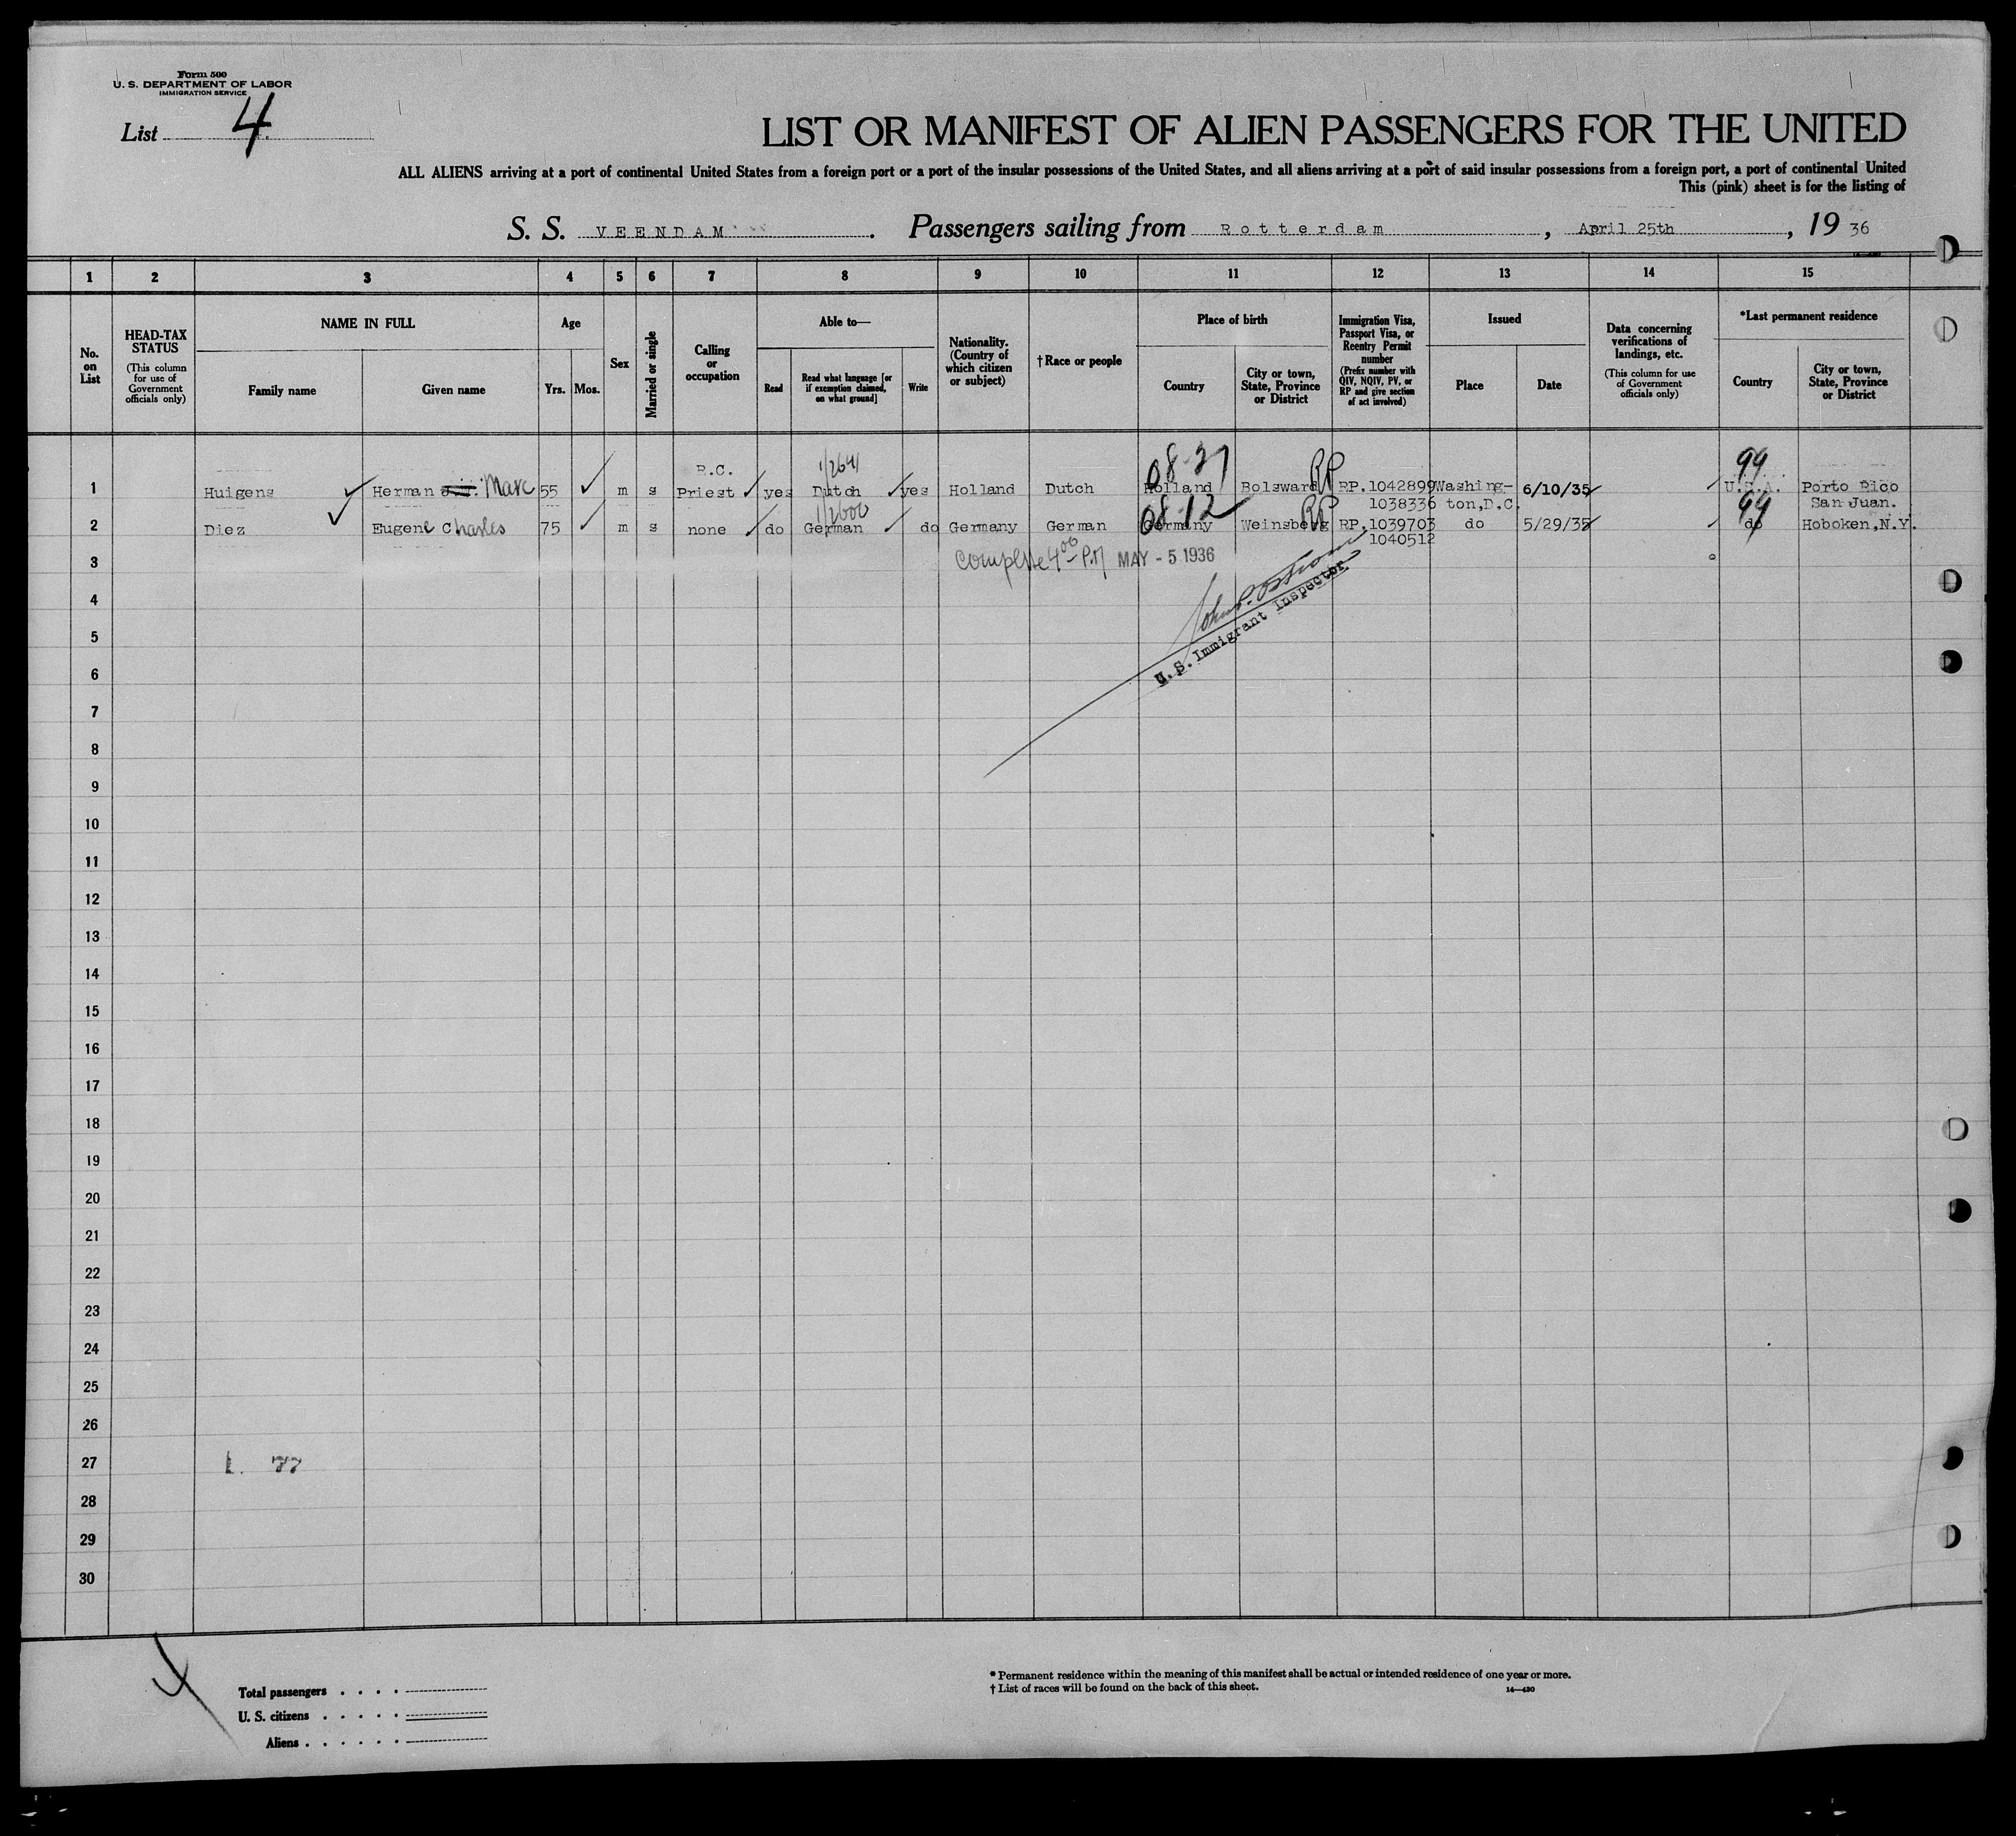 Form 500
U. S. DEPARTMENT OF LABOR
IMMIGRATION SERVICE
List 4
LIST OR MANIFEST OF ALIEN PASSENGERS FOR THE UNITED
ALL ALIENS arriving at a port of continental United States from a foreign port or a port of the insular possessions of the United States, and all aliens arriving at a port of said insular possessions from a foreign port, a port of continental United
This (pink) sheet is for the listing of
S. S. VEENDAM. Passengers sailing from Rotterdam, April 25th, 19 36
1 2 3 4 5 6 7 8 9 10 11 12 13 14 15
No. on List
HEAD-TAX STATUS
(This column for use of Government officials only)
NAME IN FULL
Family name
Given name
Age
Yrs. Mos.
Sex
Married or single
Calling or occupation
Able to—
Read
Read what language [or if exemption claimed, on what ground]
Write
Nationality. (Country of which citizen or subject)
†Race or people
Place of birth
Country
City or town, State, Province or District
Immigration Visa, Passport Visa, or Reentry Permit number
(Prefix number with QIV, NQIV, PV, or RP and give section of act involved)
Issued
Place
Date
Data concerning verifications of landings, etc.
(This column for use of Government officials only)
*Last permanent residence
Country
City or town, State, Province or District
R.C. 1/2641 08-37 RP 99
1 Huigens Herman Marc 55 m s Priest yes Dutch yes Holland Dutch Holland Bolsward RP.1042899 Washing- 6/10/35 U.S.A. Porto Rico
1/2600 08-12 RP 1038336 ton,D.C. 99 San Juan.
2 Diez Eugene Charles 75 m s none do German do Germany German Germany Weinsberg RP.1039703 do 5/29/35 do Hoboken,N.Y.
1040512
3 Complete 4 00 P.M MAY - 5 1936
U. S. Immigrant Inspector
4
5
6
7
8
9
10
11
12
13
14
15
16
17
18
19
20
21
22
23
24
25
26
27
28
29
30
Total passengers . . . .
U. S. citizens . . . . .
Aliens . . . . . .
* Permanent residence within the meaning of this manifest shall be actual or intended residence of one year or more.
† List of races will be found on the back of this sheet.
14—430